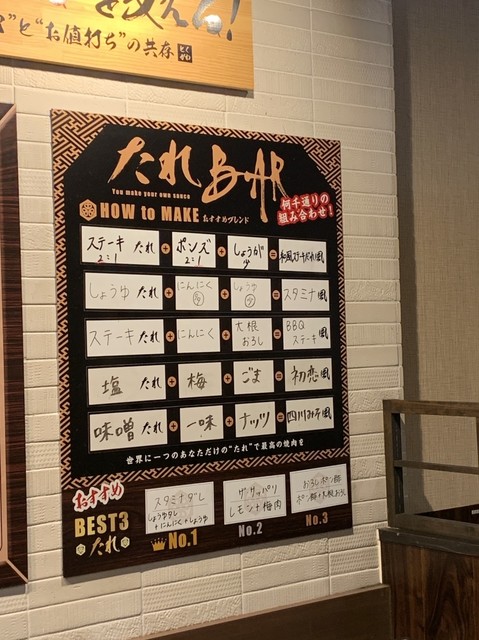 を反える!
と"お値打ち"の共存
たれBAR
You make your own sauce
何千通りの
組み合わせ!
HOW to MAKE おすすめブレンド
ステーキ たれ + ポンズ + しょうが = 和風ステーキだれ風
2:1 2:1 少
しょうゆ たれ + にんにく + しょうゆ = スタミナ 風
ステーキ たれ + にんにく + 大根おろし = BBQステーキ 風
塩 たれ + 梅 + ごま = 初恋 風
味噌 たれ + 一味 + ナッツ = 四川みそ 風
世界に一つのあなただけの"たれ"で最高の焼肉を
おすすめ
BEST3
たれ
スタミナダレ
しょうゆダレ
+にんにく+しょうゆ
No.1
サッパリ
レモン+梅肉
No.2
おろしポン酢
No.3